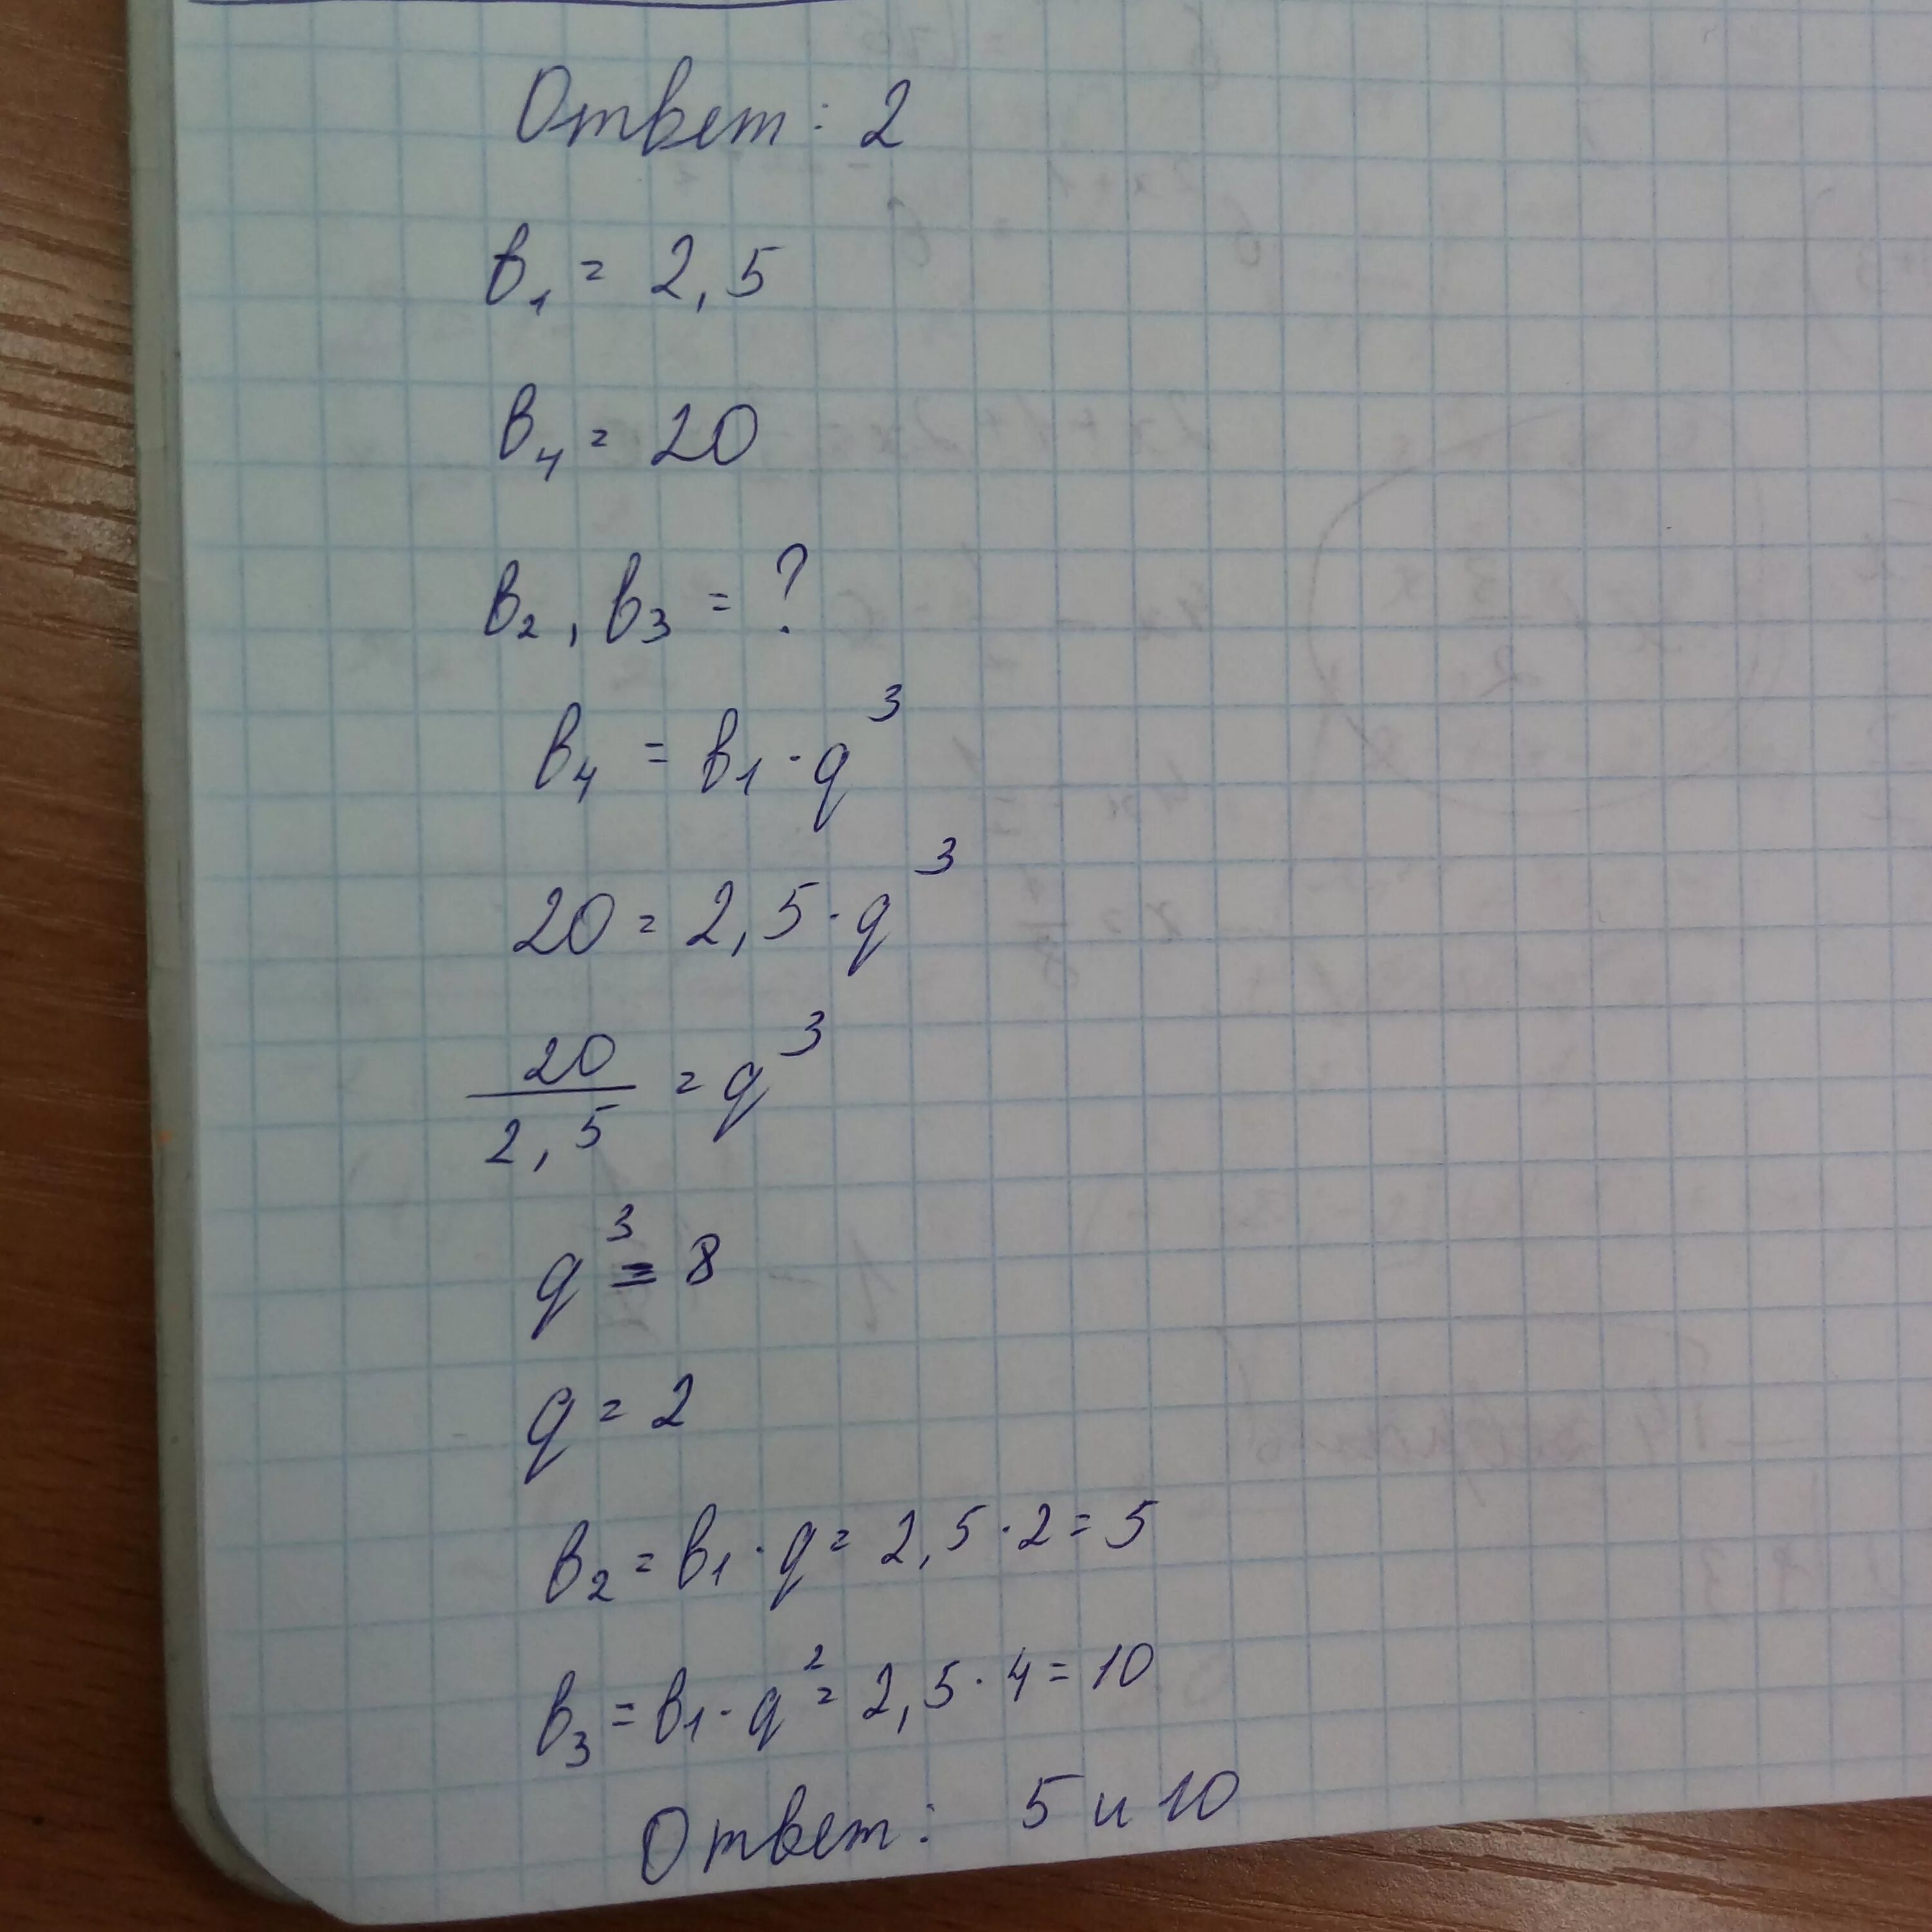 Ответ: 2
b₁ = 2,5
b₄ = 20
b₂, b₃ = ?
b₄ = b₁ · q³
20 = 2,5 · q³
20/2,5 = q³
q³ = 8
q = 2
b₂ = b₁ · q = 2,5 · 2 = 5
b₃ = b₁ · q² = 2,5 · 4 = 10
Ответ: 5 и 10